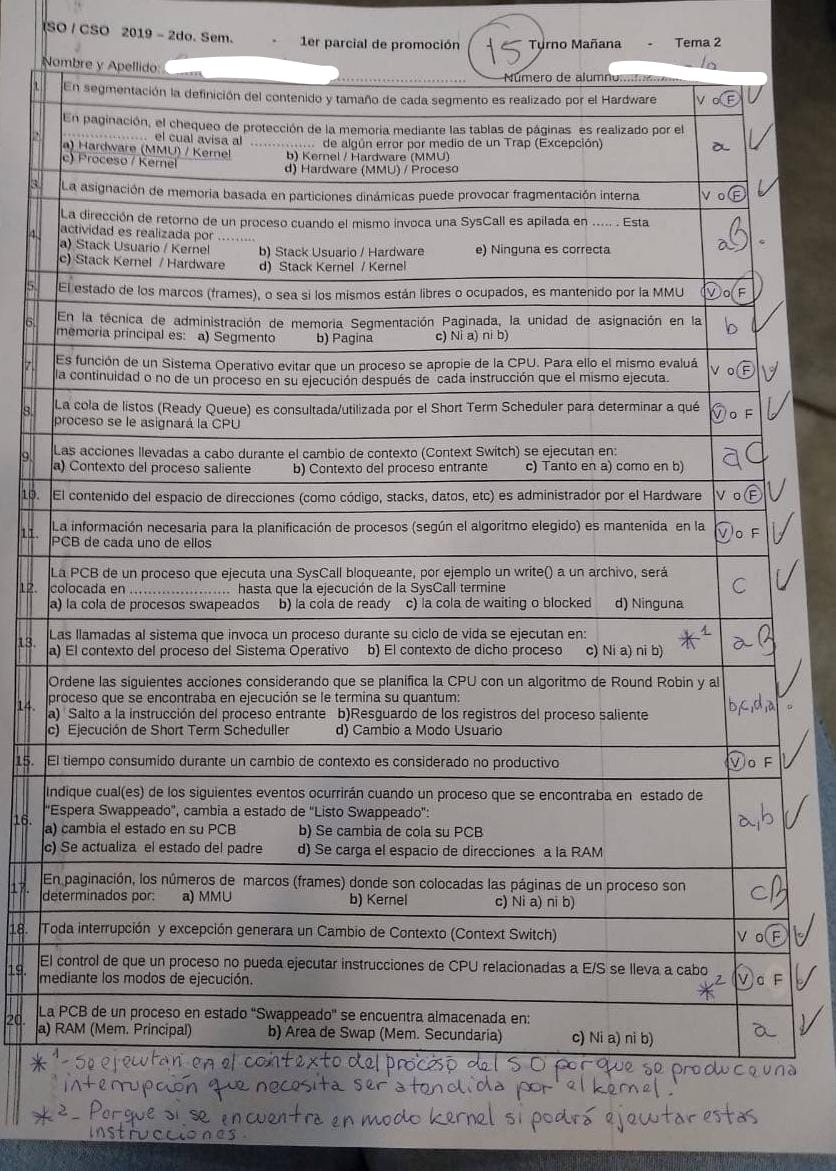 ISO / CSO 2019 – 2do. Sem. - 1er parcial de promoción 15 Turno Mañana - Tema 2
Nombre y Apellido: Número de alumno:
1. En segmentación la definición del contenido y tamaño de cada segmento es realizado por el Hardware V o F
2. En paginación, el chequeo de protección de la memoria mediante las tablas de páginas es realizado por el
..................... el cual avisa al ................ de algún error por medio de un Trap (Excepción) a
a) Hardware (MMU) / Kernel b) Kernel / Hardware (MMU)
c) Proceso / Kernel d) Hardware (MMU) / Proceso
3. La asignación de memoria basada en particiones dinámicas puede provocar fragmentación interna V o F
4. La dirección de retorno de un proceso cuando el mismo invoca una SysCall es apilada en ...... . Esta
actividad es realizada por ......... a B
a) Stack Usuario / Kernel b) Stack Usuario / Hardware e) Ninguna es correcta
c) Stack Kernel / Hardware d) Stack Kernel / Kernel
5. El estado de los marcos (frames), o sea si los mismos están libres o ocupados, es mantenido por la MMU V o F
6. En la técnica de administración de memoria Segmentación Paginada, la unidad de asignación en la b
memoria principal es: a) Segmento b) Pagina c) Ni a) ni b)
7. Es función de un Sistema Operativo evitar que un proceso se apropie de la CPU. Para ello el mismo evaluá V o F
la continuidad o no de un proceso en su ejecución después de cada instrucción que el mismo ejecuta.
8. La cola de listos (Ready Queue) es consultada/utilizada por el Short Term Scheduler para determinar a qué V o F
proceso se le asignará la CPU
9. Las acciones llevadas a cabo durante el cambio de contexto (Context Switch) se ejecutan en: a C
a) Contexto del proceso saliente b) Contexto del proceso entrante c) Tanto en a) como en b)
10. El contenido del espacio de direcciones (como código, stacks, datos, etc) es administrador por el Hardware V o F
11. La información necesaria para la planificación de procesos (según el algoritmo elegido) es mantenida en la V o F
PCB de cada uno de ellos
12. La PCB de un proceso que ejecuta una SysCall bloqueante, por ejemplo un write() a un archivo, será
colocada en ...................... hasta que la ejecución de la SysCall termine c
a) la cola de procesos swapeados b) la cola de ready c) la cola de waiting o blocked d) Ninguna
13. Las llamadas al sistema que invoca un proceso durante su ciclo de vida se ejecutan en: *1 a B
a) El contexto del proceso del Sistema Operativo b) El contexto de dicho proceso c) Ni a) ni b)
14. Ordene las siguientes acciones considerando que se planifica la CPU con un algoritmo de Round Robin y al
proceso que se encontraba en ejecución se le termina su quantum: b,c,d,a
a) Salto a la instrucción del proceso entrante b)Resguardo de los registros del proceso saliente
c) Ejecución de Short Term Scheduller d) Cambio a Modo Usuario
15. El tiempo consumido durante un cambio de contexto es considerado no productivo V o F
16. Indique cual(es) de los siguientes eventos ocurrirán cuando un proceso que se encontraba en estado de
"Espera Swappeado", cambia a estado de "Listo Swappeado": a,b
a) cambia el estado en su PCB b) Se cambia de cola su PCB
c) Se actualiza el estado del padre d) Se carga el espacio de direcciones a la RAM
17. En paginación, los números de marcos (frames) donde son colocadas las páginas de un proceso son c B
determinados por: a) MMU b) Kernel c) Ni a) ni b)
18. Toda interrupción y excepción generara un Cambio de Contexto (Context Switch) V o F
19. El control de que un proceso no pueda ejecutar instrucciones de CPU relacionadas a E/S se lleva a cabo V o F
mediante los modos de ejecución. *2
20. La PCB de un proceso en estado "Swappeado" se encuentra almacenada en: a
a) RAM (Mem. Principal) b) Area de Swap (Mem. Secundaria) c) Ni a) ni b)
*1- Se ejecutan en el contexto del proceso del SO porque se produce una
interrupción que necesita ser atendida por el kernel.
*2- Porque si se encuentra en modo kernel si podrá ejecutar estas
instrucciones.